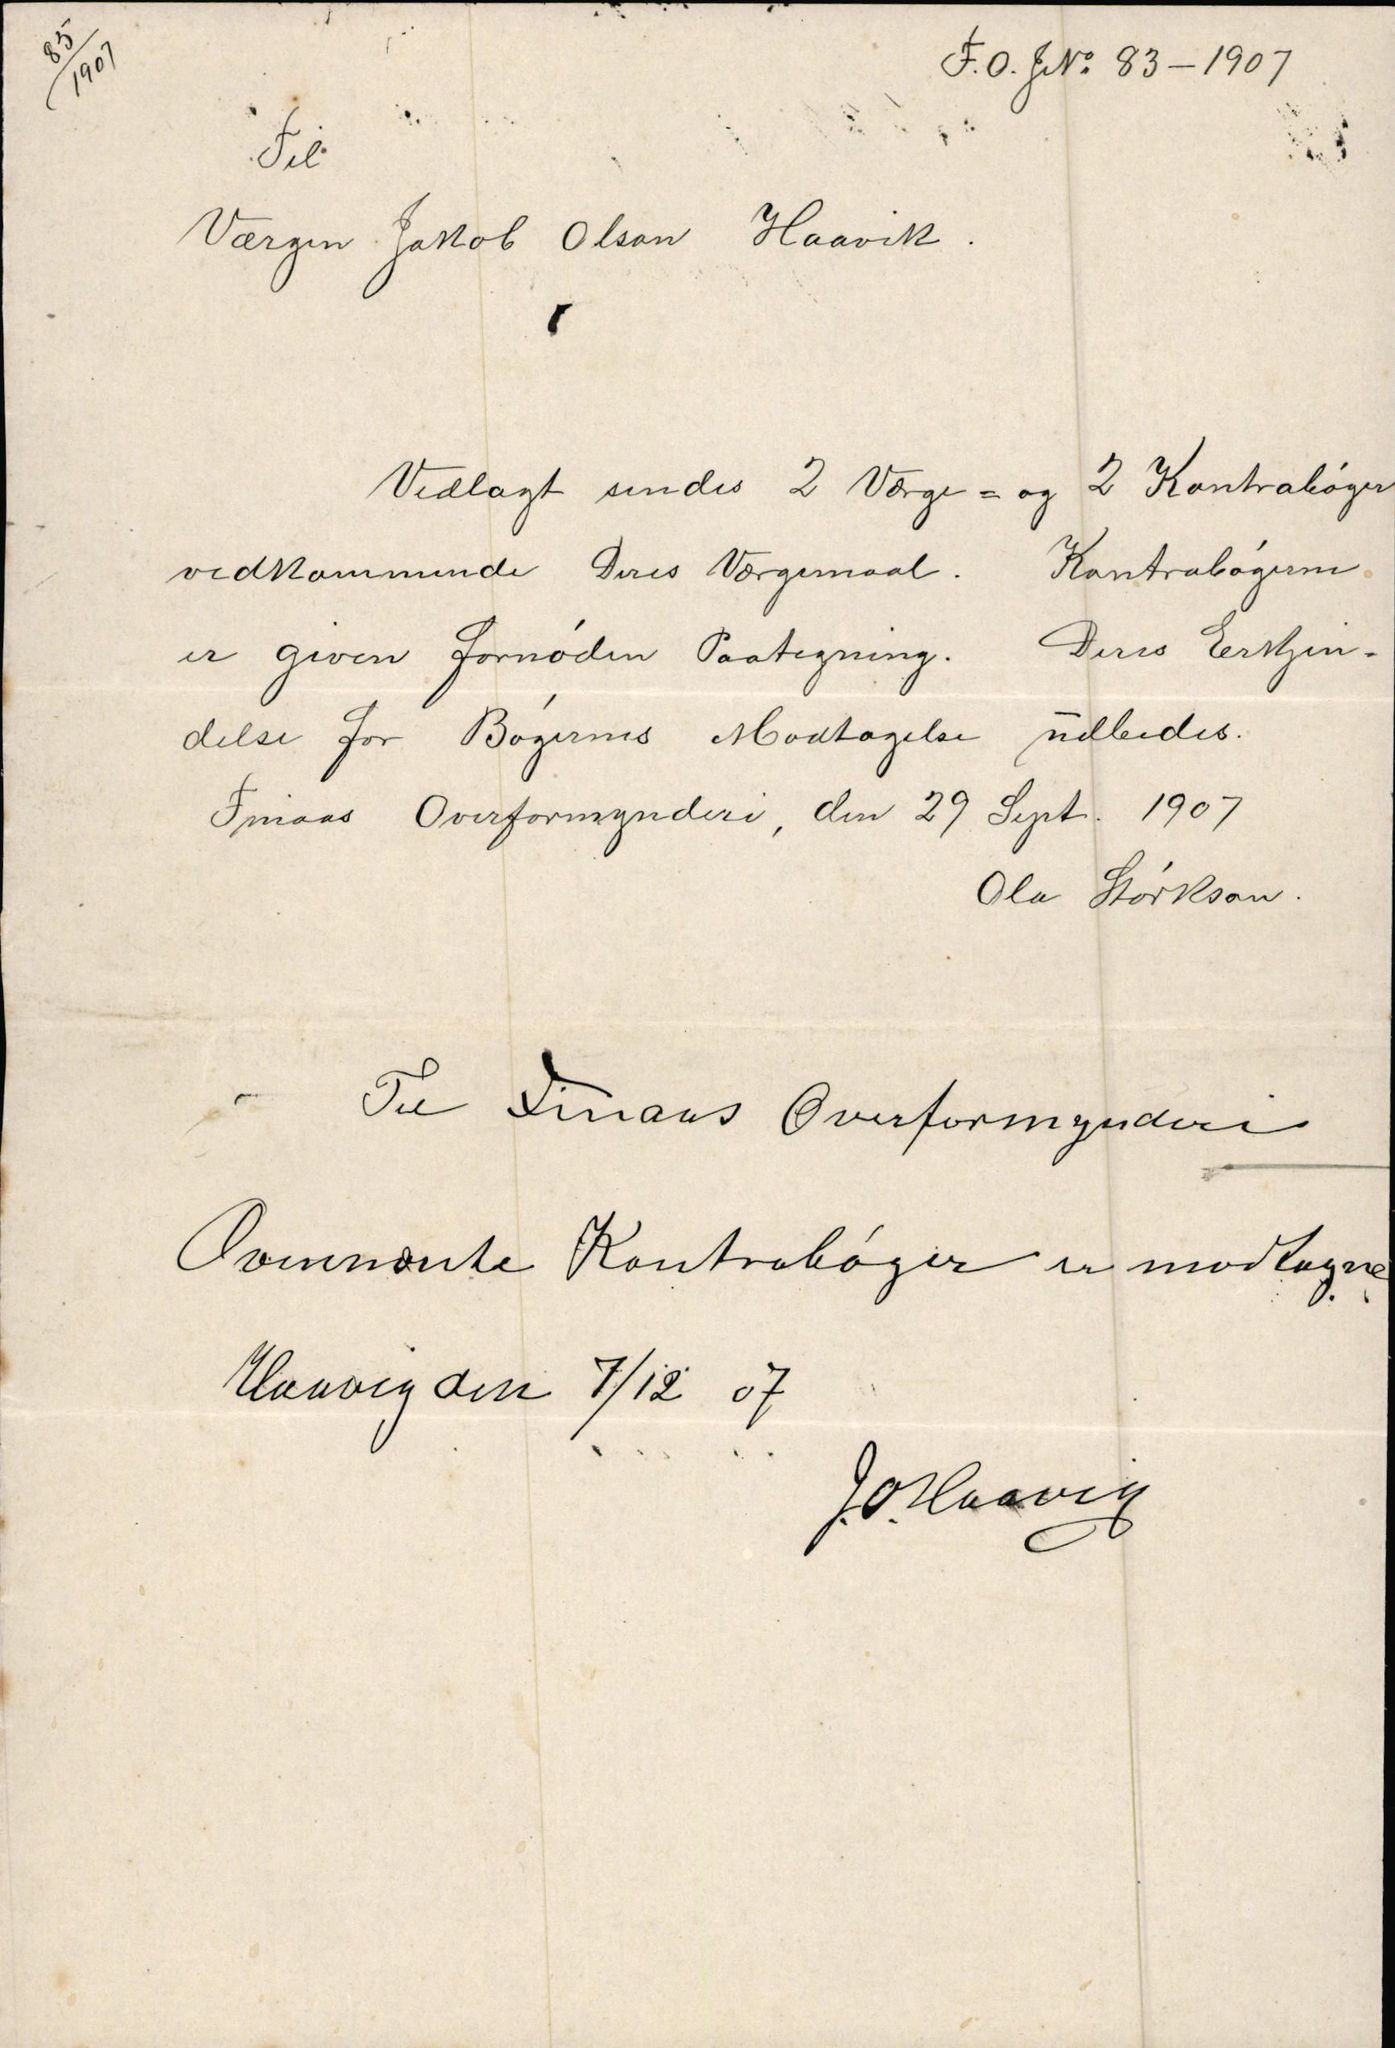 85/1907
F.O. J№ 83 – 1907
Til
Værgen Jakob Olson Haavik.
Vedlagt sendes 2 Værge= og 2 Kontrabóger
vedkommende Deres Værgemaal. Kontrabógerne
er given fornóden Paategning. Deres Erkjen-
delse for Bógernes Modtagelse udbedes.
Finaas Overformynderi, den 29 Sept. 1907
Ola Stórkson.
Til Finaas Overformynderi
Ovennævnte Kontrabóger er modtagne
Haavig den 7/12 07
J.O. Haavig